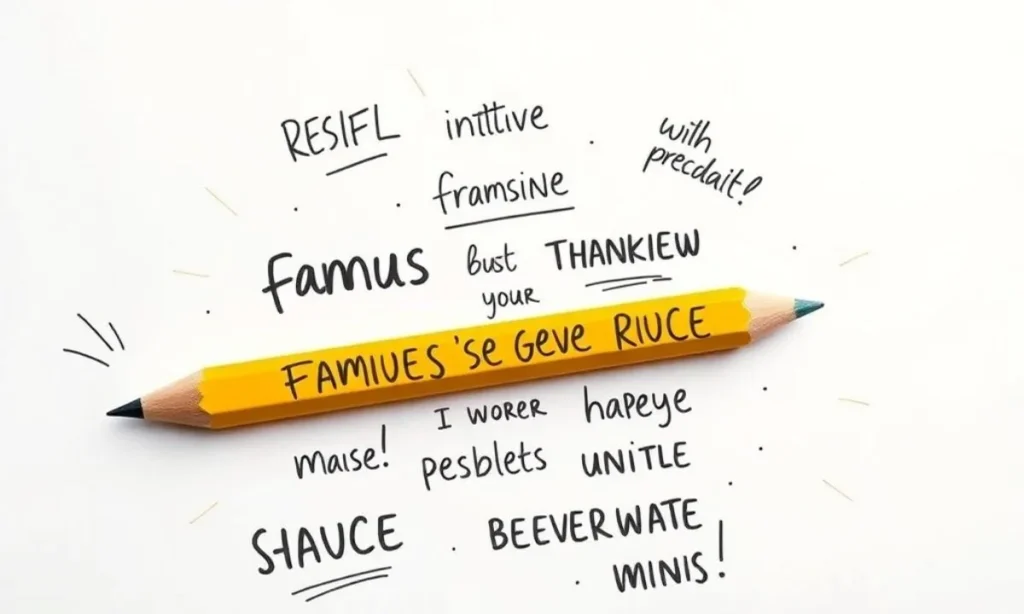 RESIFL inittive
with
precdait!
framsine
Famus Bust THANKIEW
your
FAMIUES 'se Geve RIUCE
I WORER hapeye
maise! pesblets UNITLE
SHAUCE BEEVERWATE
MINIS!